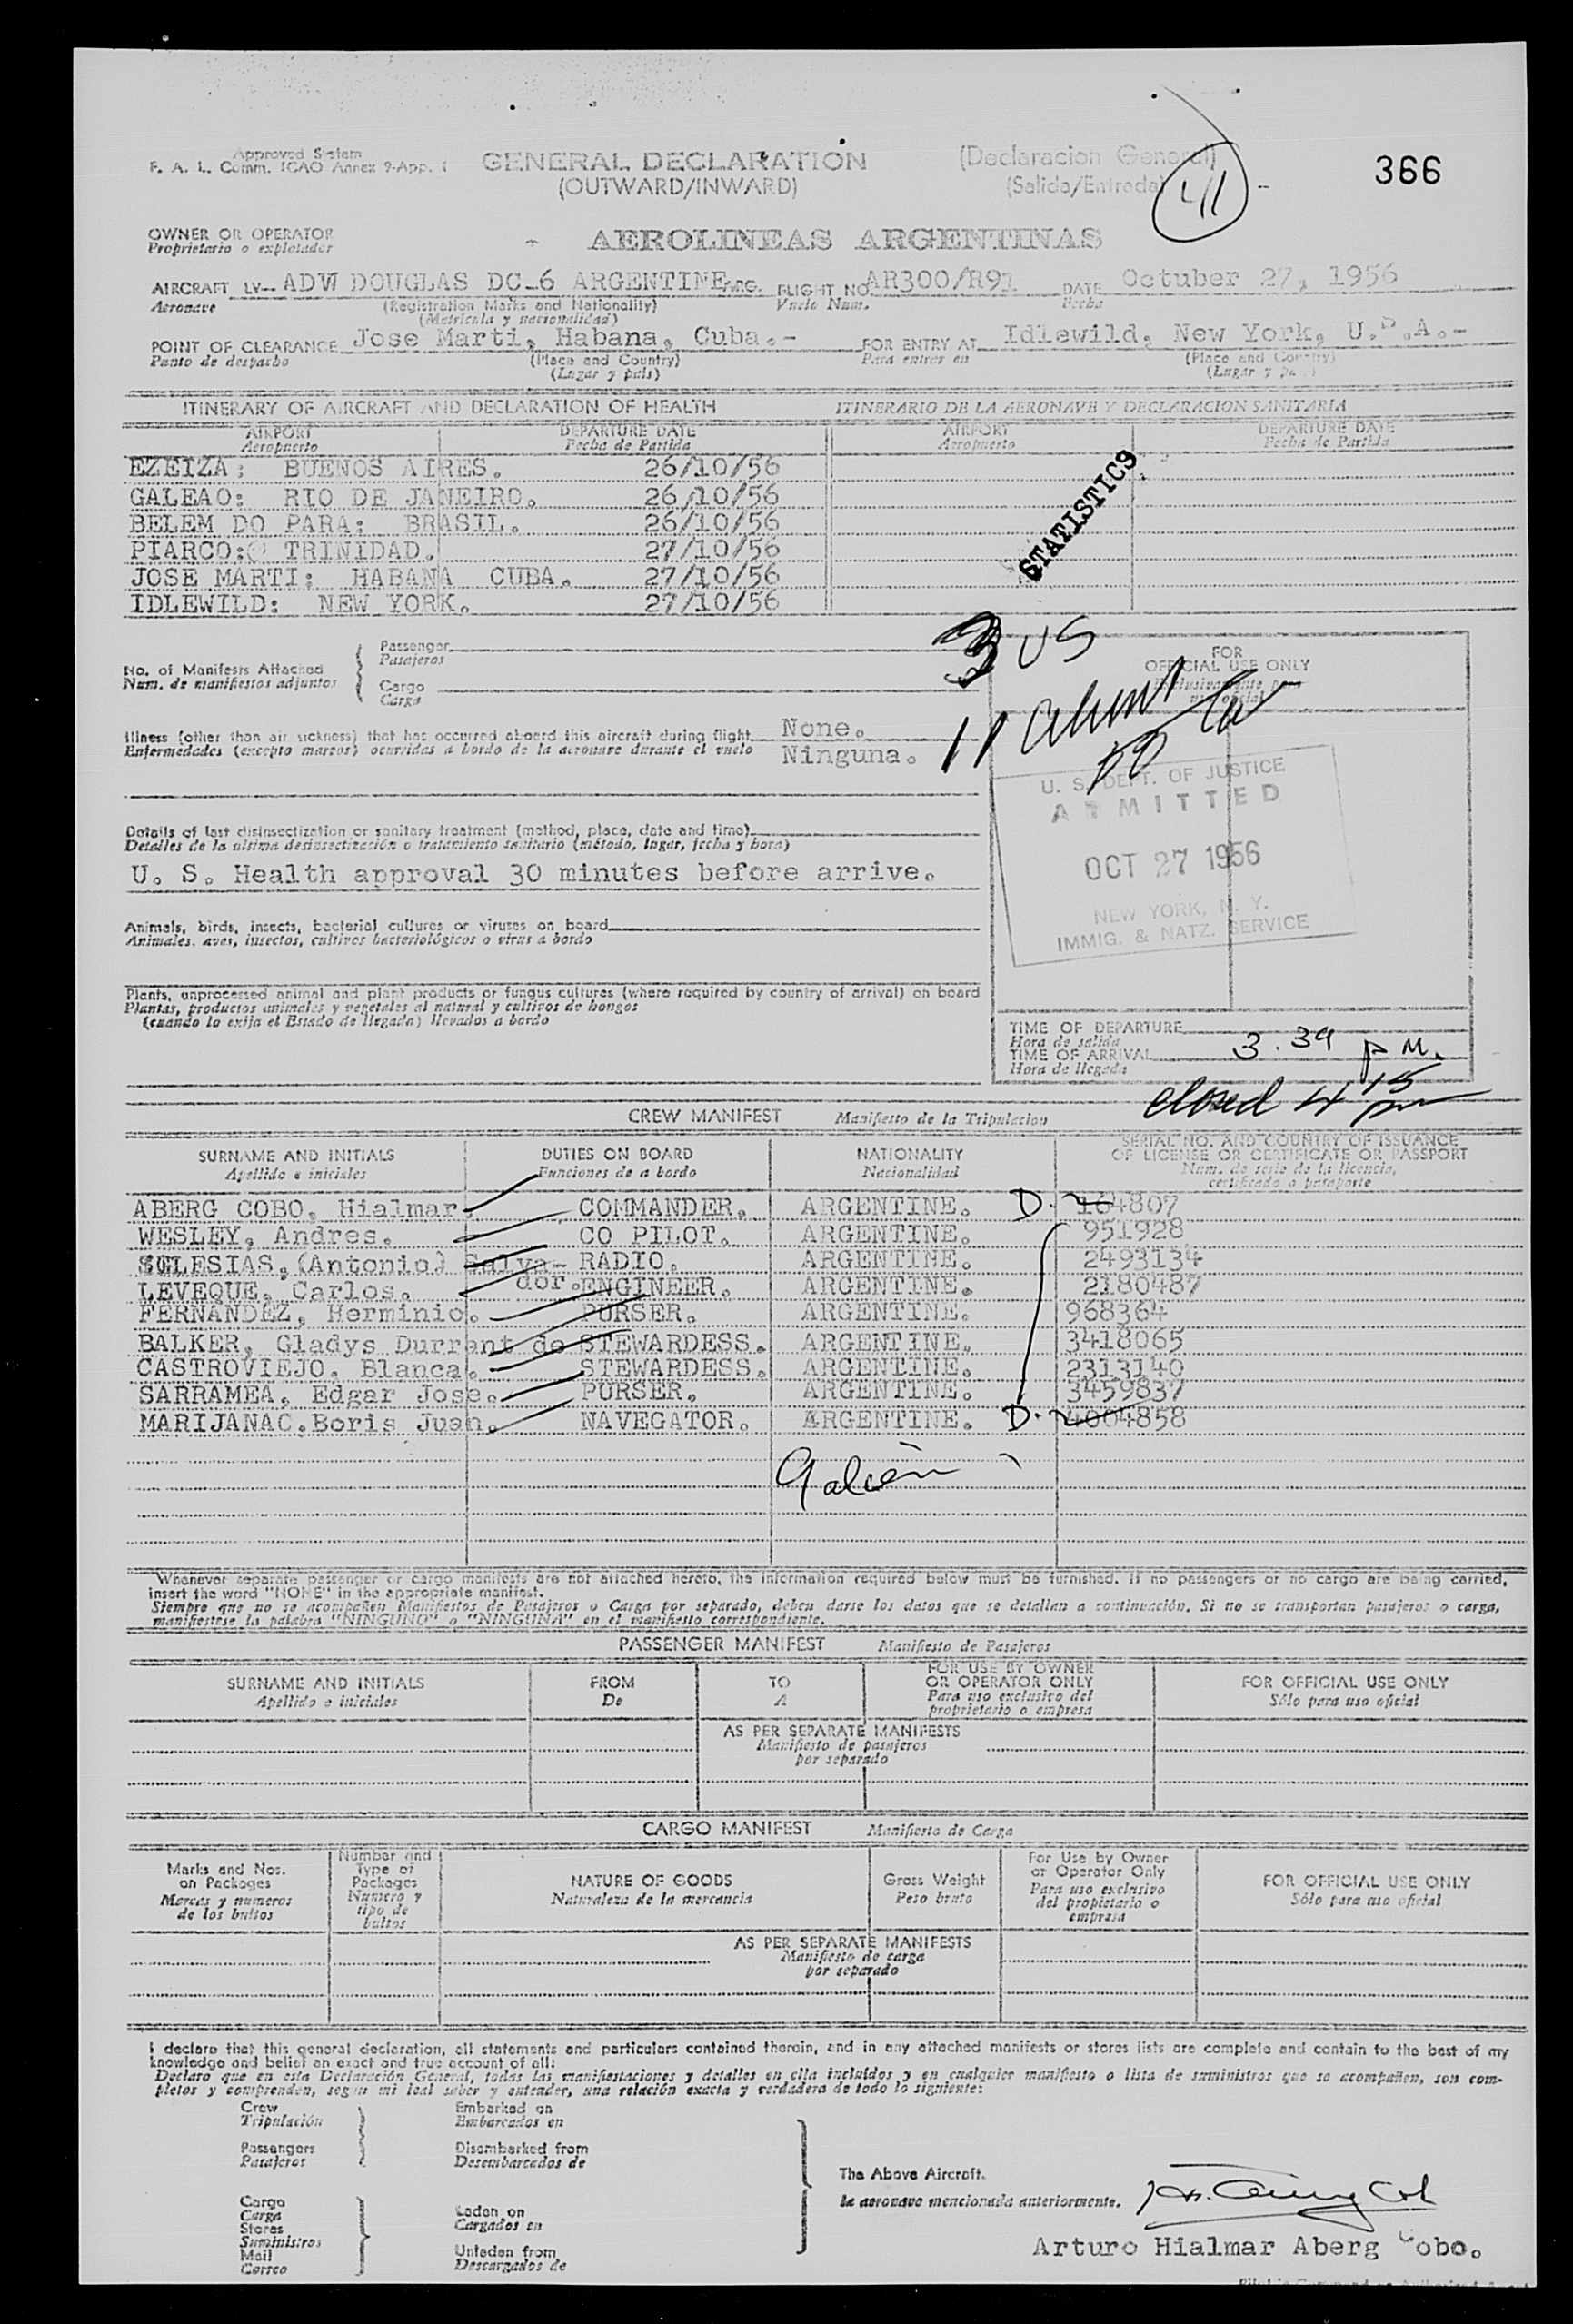 Approved System
F. A. L. Comm. ICAO Annex 9-App. 1
GENERAL DECLARATION
(OUTWARD/INWARD)
(Declaracion General)
(Salida/Entrada)
41
366
OWNER OR OPERATOR
Proprietario o explotador
AEROLINEAS ARGENTINAS
AIRCRAFT LV-- ADW DOUGLAS DC-6 ARGENTINE FLIGHT NO AR300/R91 DATE Octuber 27, 1956
Aeronave (Registration Marks and Nationality) Vuelo Num. Fecha
(Matricula y nacionalidad)
POINT OF CLEARANCE Jose Marti, Habana, Cuba.- FOR ENTRY AT Idlewild, New York, U.S.A.-
Punto de despacho (Place and Country) Para entrar en (Place and Country)
(Lugar y pais) (Lugar y pais)
ITINERARY OF AIRCRAFT AND DECLARATION OF HEALTH ITINERARIO DE LA AERONAVE Y DECLARACION SANITARIA
AIRPORT DEPARTURE DATE AIRPORT DEPARTURE DATE
Aeropuerto Fecha de Partida Aeropuerto Fecha de Partida
EZEIZA: BUENOS AIRES. 26/10/56
GALEAO: RIO DE JANEIRO. 26/10/56
BELEM DO PARA: BRASIL. 26/10/56
PIARCO: TRINIDAD. 27/10/56
JOSE MARTI: HABANA CUBA. 27/10/56
IDLEWILD: NEW YORK. 27/10/56
STATISTICS
3 US
11 alien
No. of Manifests Attached
Num. de manifiestos adjuntos
Passenger
Pasajeros
Cargo
Carga
FOR
OFFICIAL USE ONLY
Exclusivamente para
uso oficial
Illness (other than air sickness) that has occurred aboard this aircraft during flight None.
Enfermedades (excepto mareos) ocurridas a bordo de la aeronave durante el vuelo Ninguna.
U. S. DEPT. OF JUSTICE
ADMITTED
OCT 27 1956
NEW YORK, N. Y.
IMMIG. & NATZ. SERVICE
Details of last disinsectization or sanitary treatment (method, place, date and time)
Detalles de la ultima desinsectización o tratamiento sanitario (método, lugar, fecha y hora)
U. S. Health approval 30 minutes before arrive.
Animals, birds, insects, bacterial cultures or viruses on board
Animales, aves, insectos, cultivos bacteriológicos o virus a bordo
Plants, unprocessed animal and plant products or fungus cultures (where required by country of arrival) on board
Plantas, productos animales y vegetales al natural y cultivos de hongos
(cuando lo exija el Estado de llegada) llevados a bordo
TIME OF DEPARTURE
Hora de salida
TIME OF ARRIVAL 3.39 P M.
Hora de llegada
closed 4 15 pm
CREW MANIFEST Manifiesto de la Tripulacion
SURNAME AND INITIALS DUTIES ON BOARD NATIONALITY SERIAL NO. AND COUNTRY OF ISSUANCE
OF LICENSE OR CERTIFICATE OR PASSPORT
Apellido e iniciales Funciones de a bordo Nacionalidad Num. de serie de la licencia,
certificado o pasaporte
ABERG COBO, Hialmar. COMMANDER. ARGENTINE. D. 164807
WESLEY, Andres. CO PILOT. ARGENTINE. 951928
IGLESIAS,(Antonio) Salva- RADIO. ARGENTINE. 2493134
LEVEQUE, Carlos. dor. ENGINEER. ARGENTINE. 2180487
FERNANDEZ, Herminio. PURSER. ARGENTINE. 968364
BALKER, Gladys Durrant de STEWARDESS. ARGENTINE. 3418065
CASTROVIEJO, Blanca. STEWARDESS. ARGENTINE. 2313140
SARRAMEA, Edgar Jose. PURSER. ARGENTINE. 3459837
MARIJANAC.Boris Juan. NAVEGATOR. ARGENTINE. D. 4004858
Whenever separate passenger or cargo manifests are not attached hereto, the information required below must be furnished. If no passengers or no cargo are being carried,
insert the word "NONE" in the appropriate manifest.
Siempre que no se acompañen Manifiestos de Pasajeros o Carga por separado, deben darse los datos que se detallan a continuación. Si no se transportan pasajeros o carga,
manifiestese la palabra "NINGUNO" o "NINGUNA" en el manifiesto correspondiente.
PASSENGER MANIFEST Manifiesto de Pasajeros
SURNAME AND INITIALS FROM TO FOR USE BY OWNER
OR OPERATOR ONLY FOR OFFICIAL USE ONLY
Apellido e iniciales De A Para uso exclusivo del
proprietario o empresa Sólo para uso oficial
AS PER SEPARATE MANIFESTS
Manifiesto de pasajeros
por separado
CARGO MANIFEST Manifiesto de Carga
Marks and Nos.
on Packages
Marcas y numeros
de los bultos
Number and
Type of
Packages
Numero y
tipo de
bultos
NATURE OF GOODS
Naturaleza de la mercancia
Gross Weight
Peso bruto
For Use by Owner
or Operator Only
Para uso exclusivo
del propietario o
empresa
FOR OFFICIAL USE ONLY
Sólo para uso oficial
AS PER SEPARATE MANIFESTS
Manifiesto de carga
por separado
I declare that this general declaration, all statements and particulars contained therein, and in any attached manifests or stores lists are complete and contain to the best of my
knowledge and belief an exact and true account of all:
Declaro que en esta Declaración General, todas las manifestaciones y detalles en ella incluídos y en cualquier manifiesto o lista de suministros que se acompañen, son com-
pletos y comprenden, segun mi leal saber y entender, una relación exacta y verdadera de todo lo siguiente:
Crew
Tripulación
Passengers
Pasajeros
Embarked on
Embarcados en
Disembarked from
Desembarcados de
Cargo
Carga
Stores
Suministros
Mail
Correo
Laden on
Cargados en
Unladen from
Descargados de
The Above Aircraft.
la aeronave mencionada anteriormente.
Arturo Hialmar Aberg Cobo.